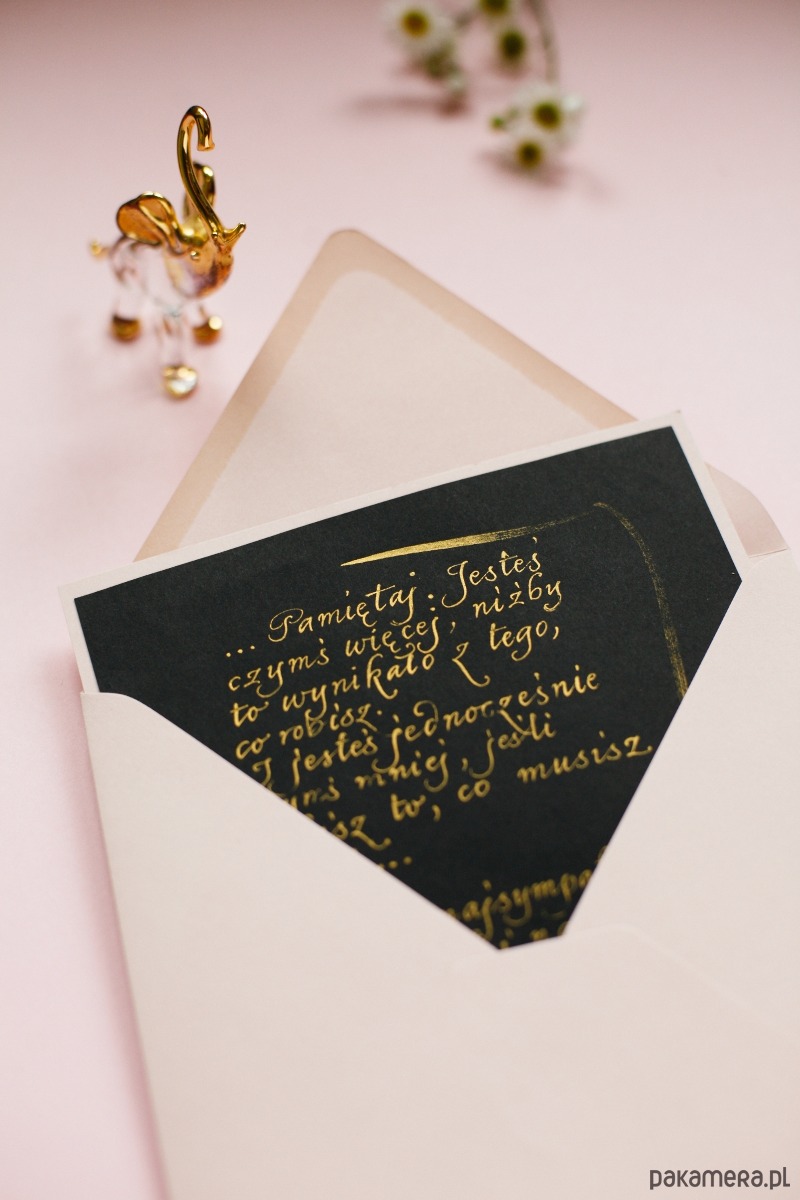 ... Pamiętaj. Jesteś
czymś więcej, niżby
to wynikało z tego,
co robisz.
I jesteś jednocześnie
mniej, jeśli
to, co musisz
...
pakamera.pl